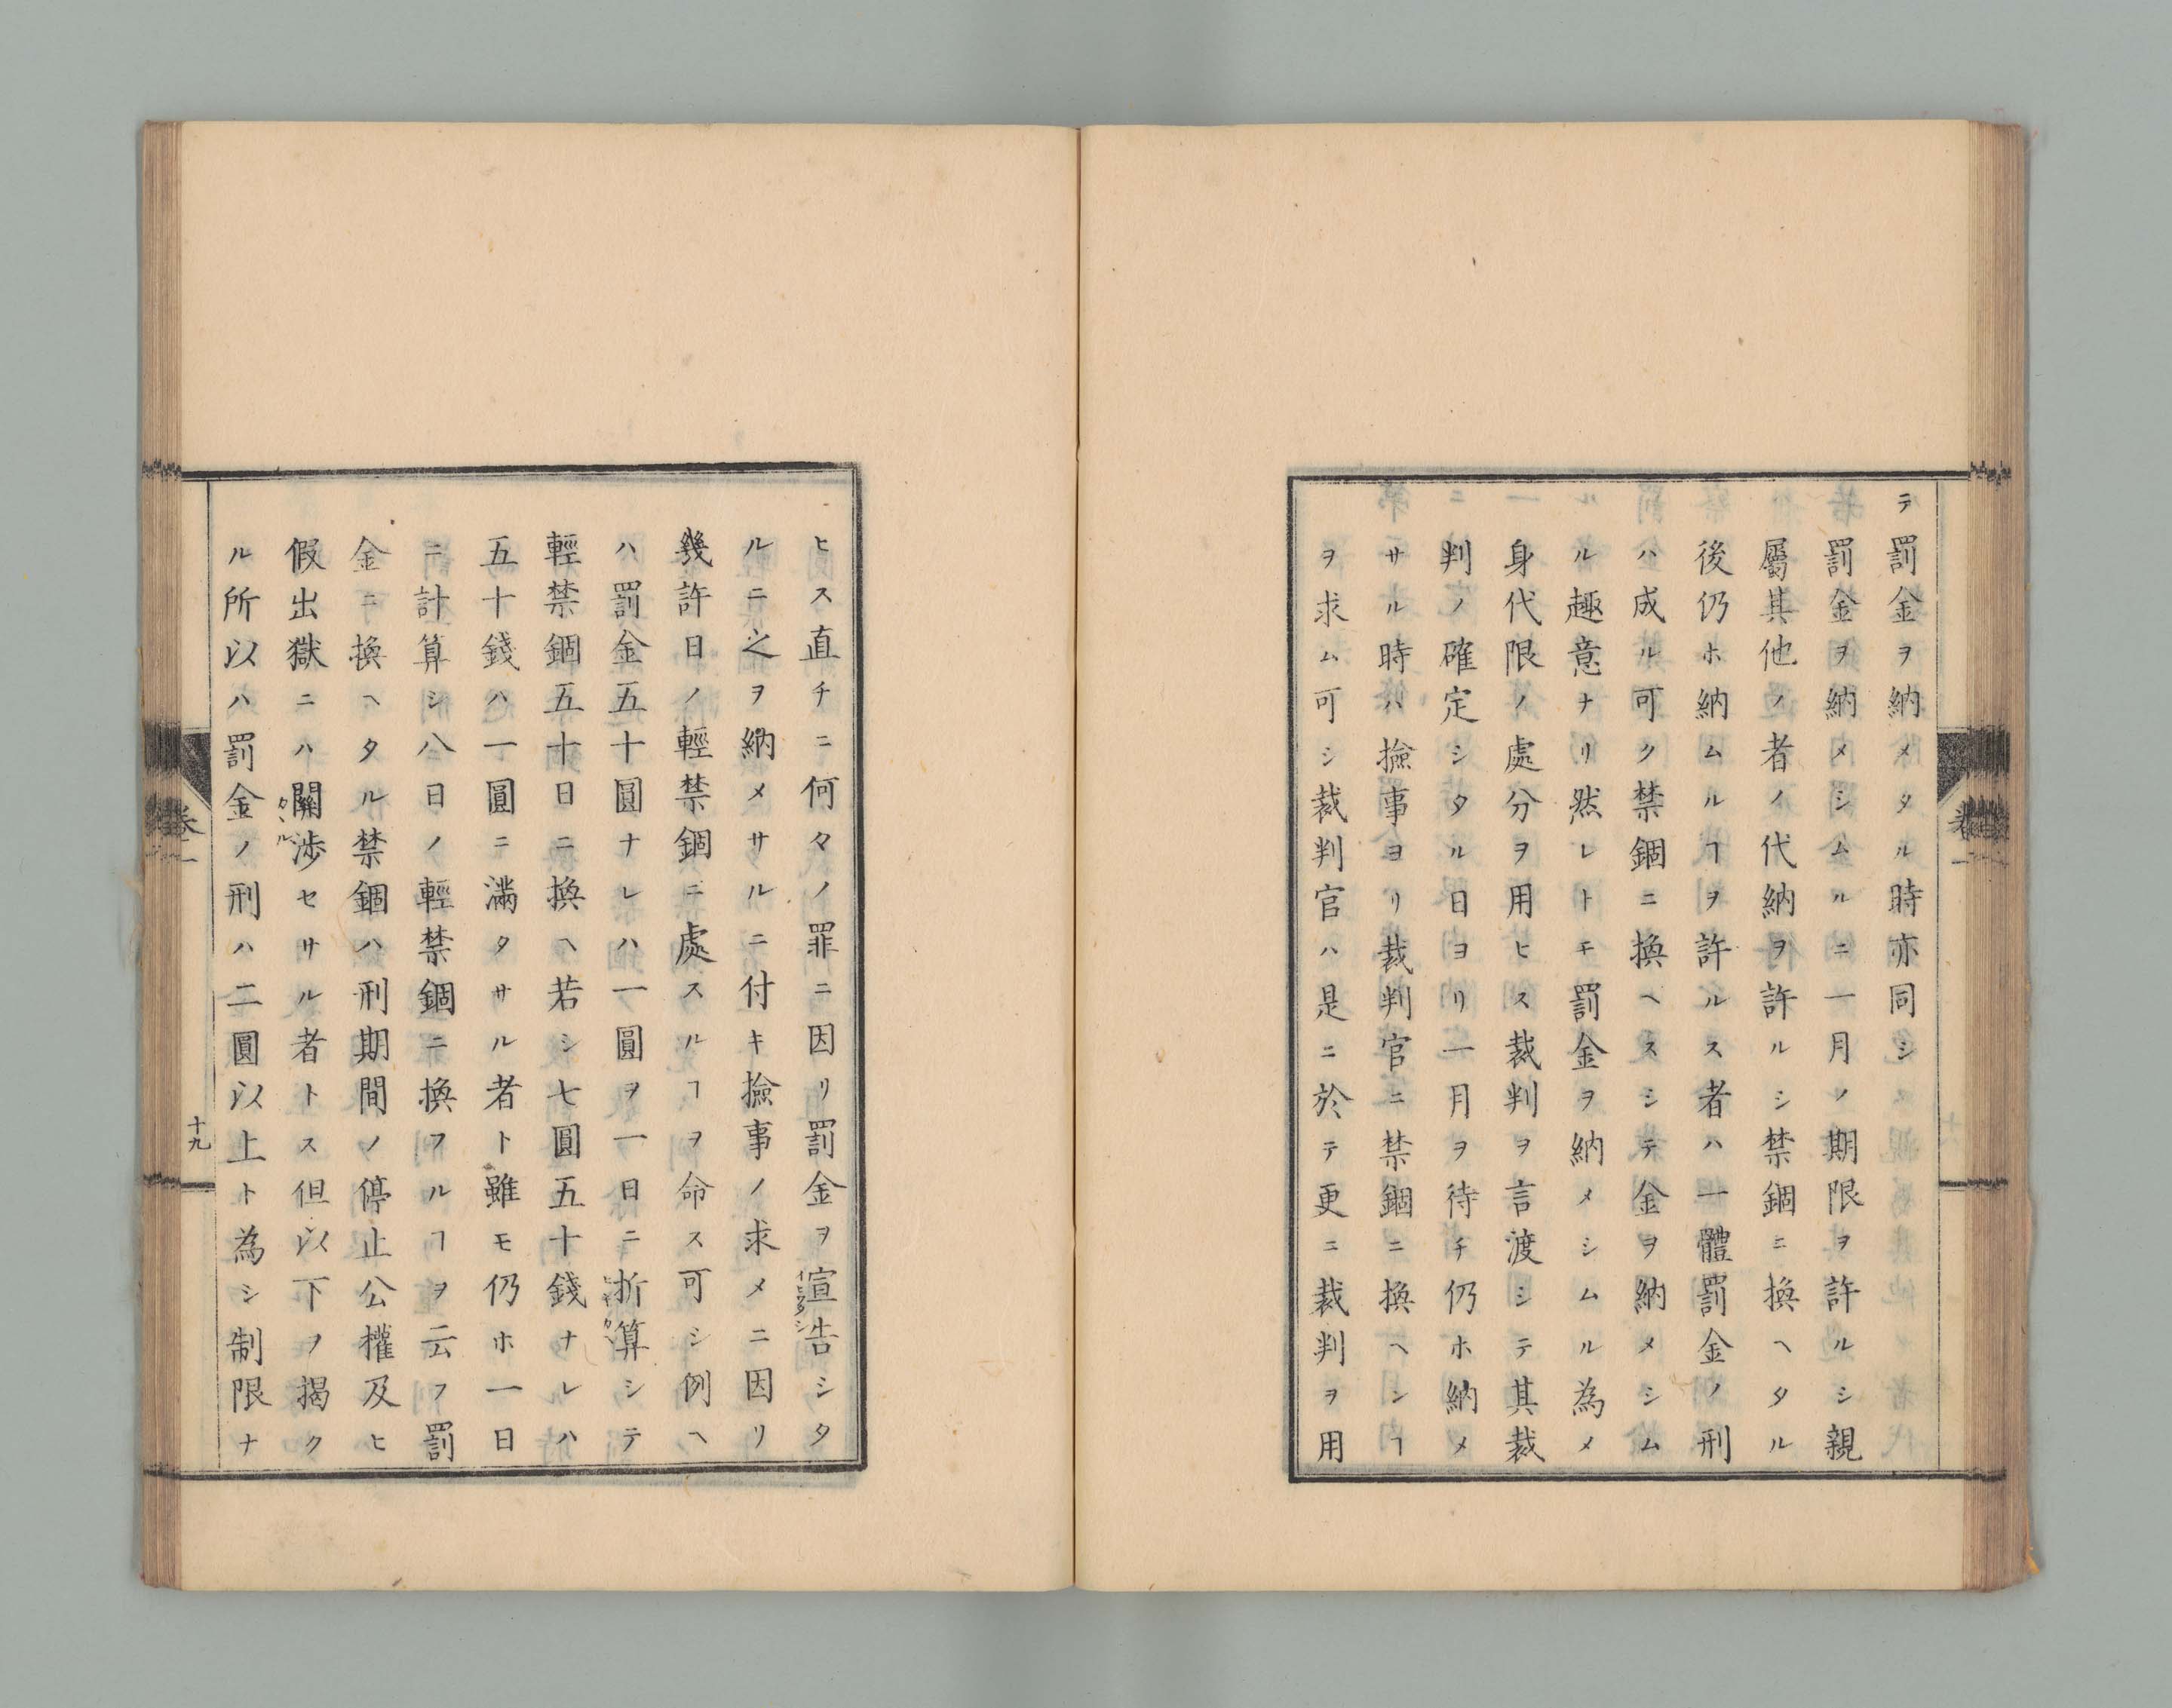 テ罰金ヲ納メタル時亦同シ
罰金ヲ納メシムルニ一月ノ期限ヲ許ルシ親
屬其他ノ者ノ代納ヲ許ルシ禁錮ニ換ヘタル
後仍ホ納ムルヿヲ許ルス者ハ一體罰金ノ刑
ハ成ル可ク禁錮ニ換ヘスシテ金ヲ納メシム
ル趣意ナリ然レトモ罰金ヲ納メシムル為メ
身代限ノ處分ヲ用ヒス裁判ヲ言渡シテ其裁
判ノ確定シタル日ヨリ一月ヲ待チ仍ホ納メ
サル時ハ撿事ヨリ裁判官ニ禁錮ニ換ヘンヿ
ヲ求ム可シ裁判官ハ是ニ於テ更ニ裁判ヲ用
ヒス直チニ何々ノ罪ニ因リ罰金ヲ宣告シタ
ルニ之ヲ納メサルニ付キ撿事ノ求メニ因リ
幾許日ノ輕禁錮ニ處スルヿヲ命ス可シ例ヘ
ハ罰金五十圓ナレハ一圓ヲ一日ニ折算シテ
輕禁錮五十日ニ換ヘ若シ七圓五十錢ナレハ
五十錢ハ一圓ニ滿タサル者ト雖モ仍ホ一日
ニ計算シ八日ノ輕禁錮ニ換フルヿヲ云フ罰
金ニ換ヘタル禁錮ハ刑期間ノ停止公權及ヒ
假出獄ニハ關渉セサル者トス但以下ヲ揭ク
ル所以ハ罰金ノ刑ハ二圓以上ト為シ制限ナ
卷一
十九